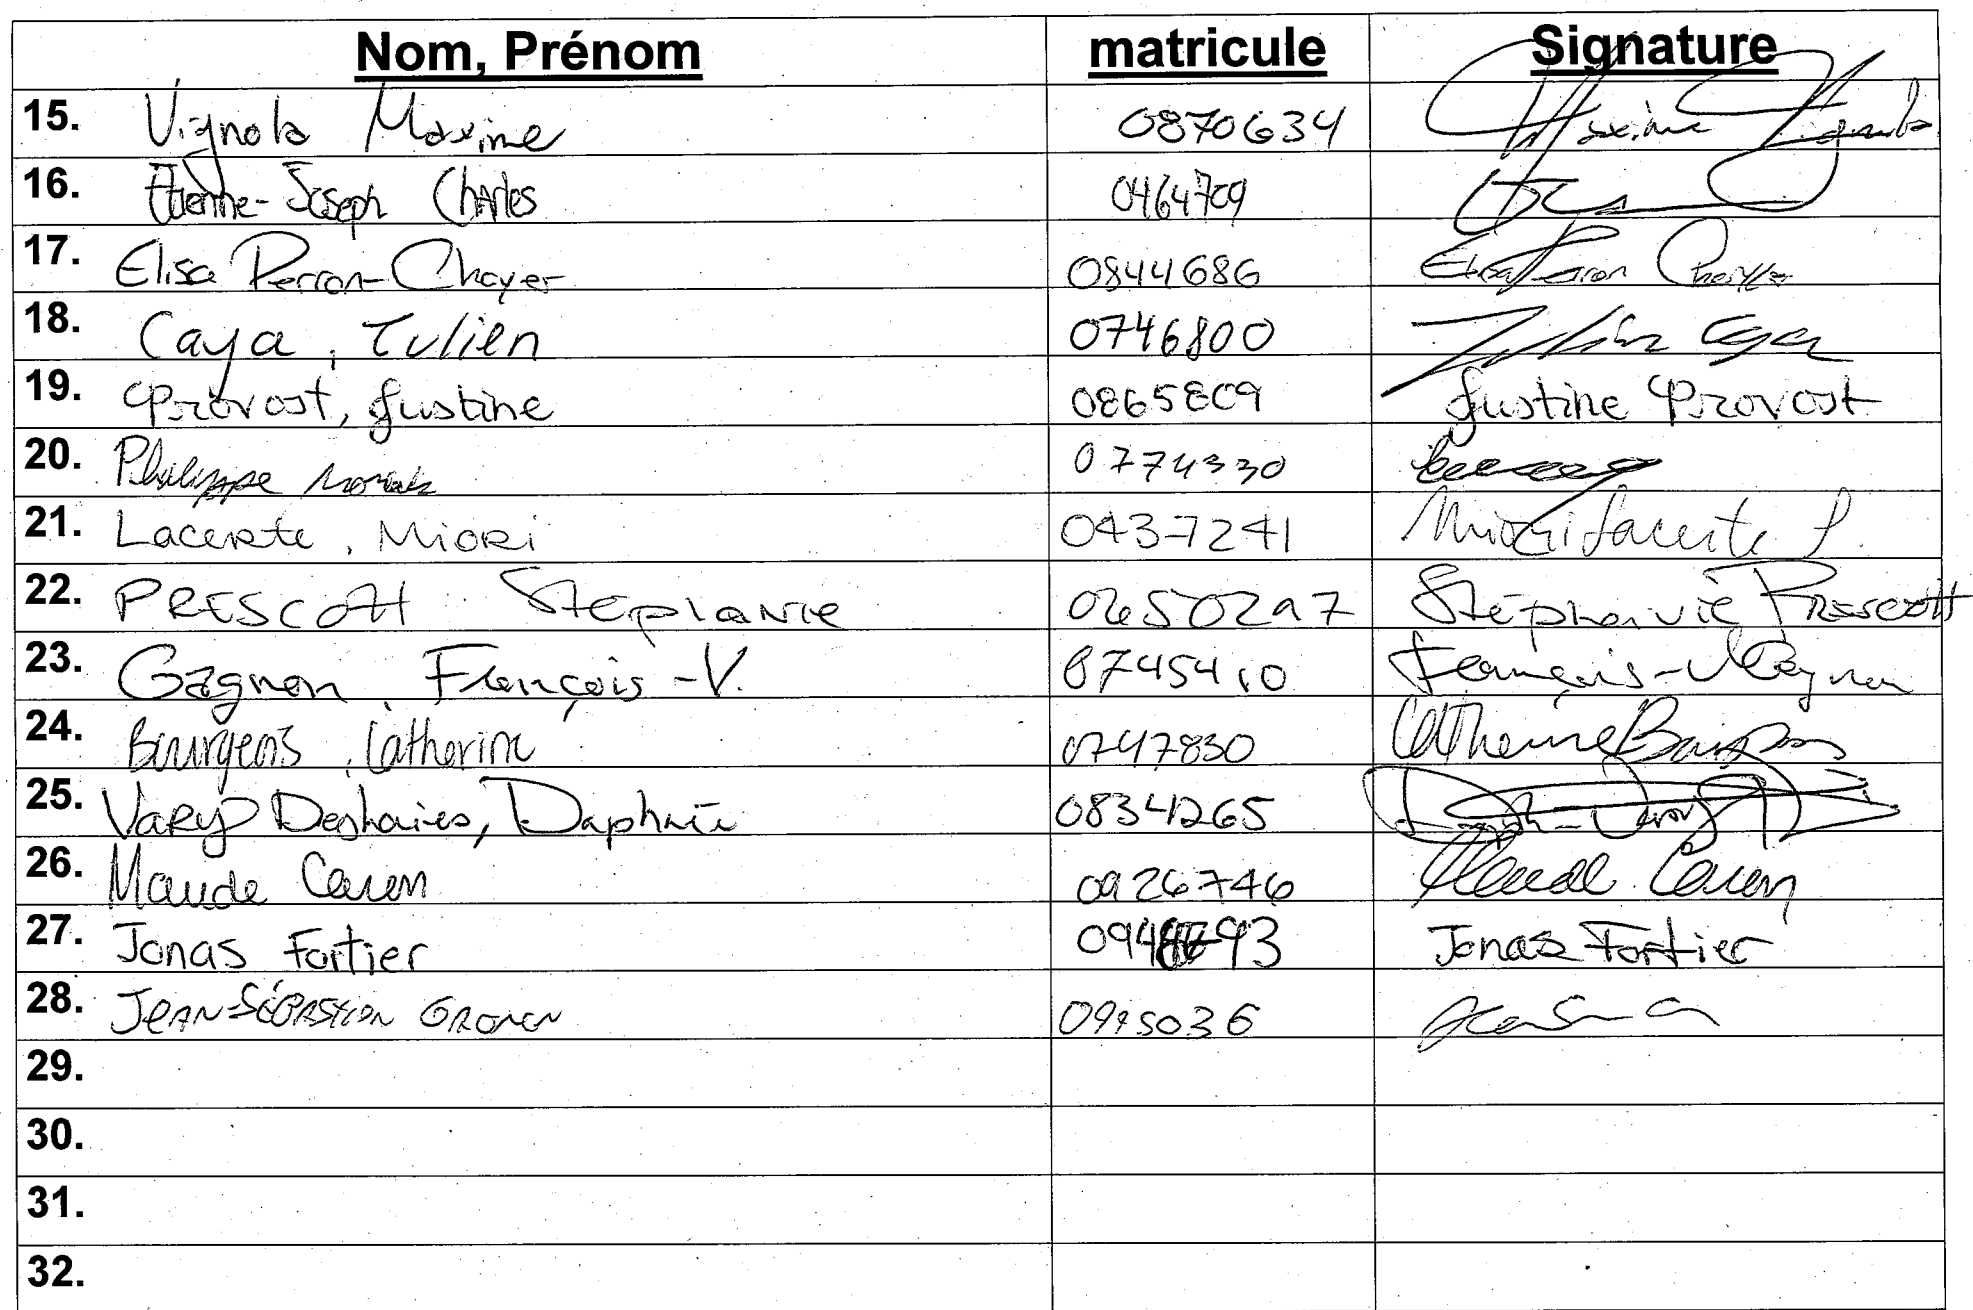 Nom, Prénom matricule Signature
15. Vignola Maxime 0870634 Maxime Vignola
16. Etienne-Joseph Charles 0464709
17. Elisa Perron-Chayer 0844686 Elisa Perron Chayer
18. Caya, Julien 0746800 Julien Caya
19. Provost, Justine 0865809 Justine Provost
20. Philippe 0774330
21. Lacerte, Miori 0437241 Miori Lacerte P.
22. PRESCOTT Stéphanie 0650297 Stéphanie Prescott
23. Gagnon, François-V. 0745410 François-V Gagnon
24. Bourgeois, Catherine 0747830 Catherine Bourgeois
25. Vary Deshaies, Daphnée 08341265
26. Maude Caron 0926746 Maude Caron
27. Jonas Fortier Jonas Fortier
28. JEAN-SÉBASTIEN 0995036
29.
30.
31.
32.